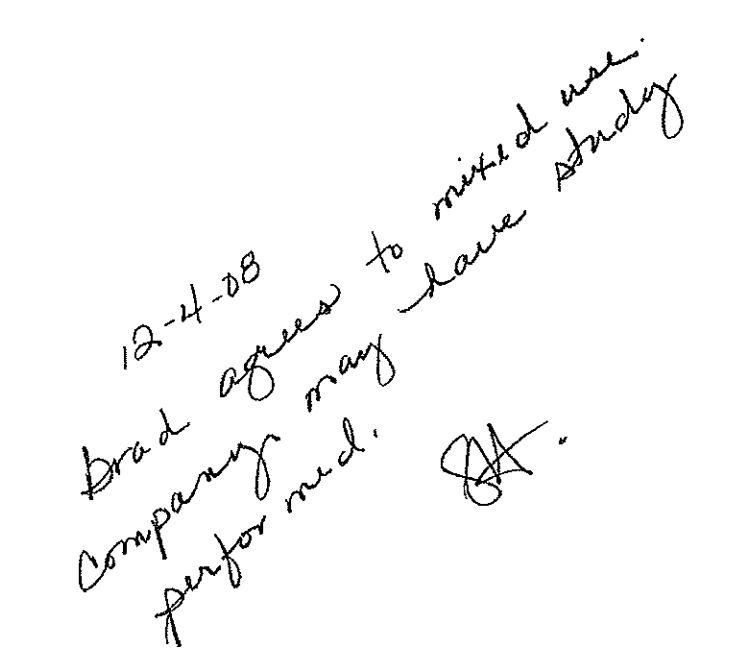 12-4-08
Brad agrees to mixed use.
Company may have study
performed.